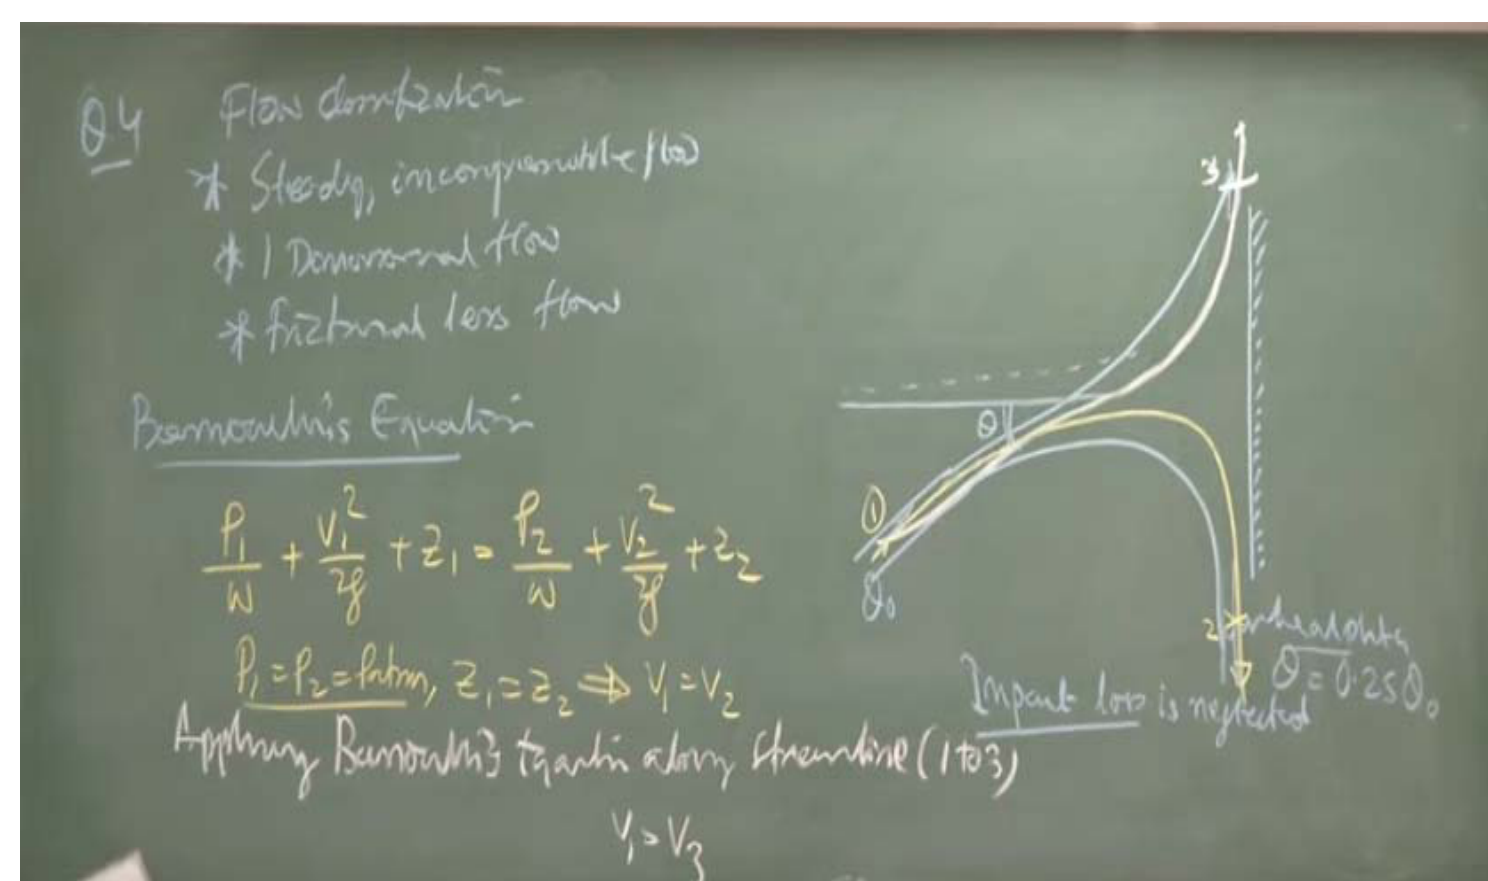 Q4 Flow classification
* Steady, incompressible flow
* 1 Dimensional flow
* frictional less flow
Bernoulli's Equation
P₁/w + V₁²/2g + Z₁ = P₂/w + V₂²/2g + Z₂
P₁ = P₂ = Patm, Z₁ = Z₂ ⇒ V₁ = V₂
Applying Bernoulli's Equation along streamline (1 to 3)
V₁ = V₃
3
θ
1
Q₀
2
Q = 0.25Q₀
Impact loss is neglected